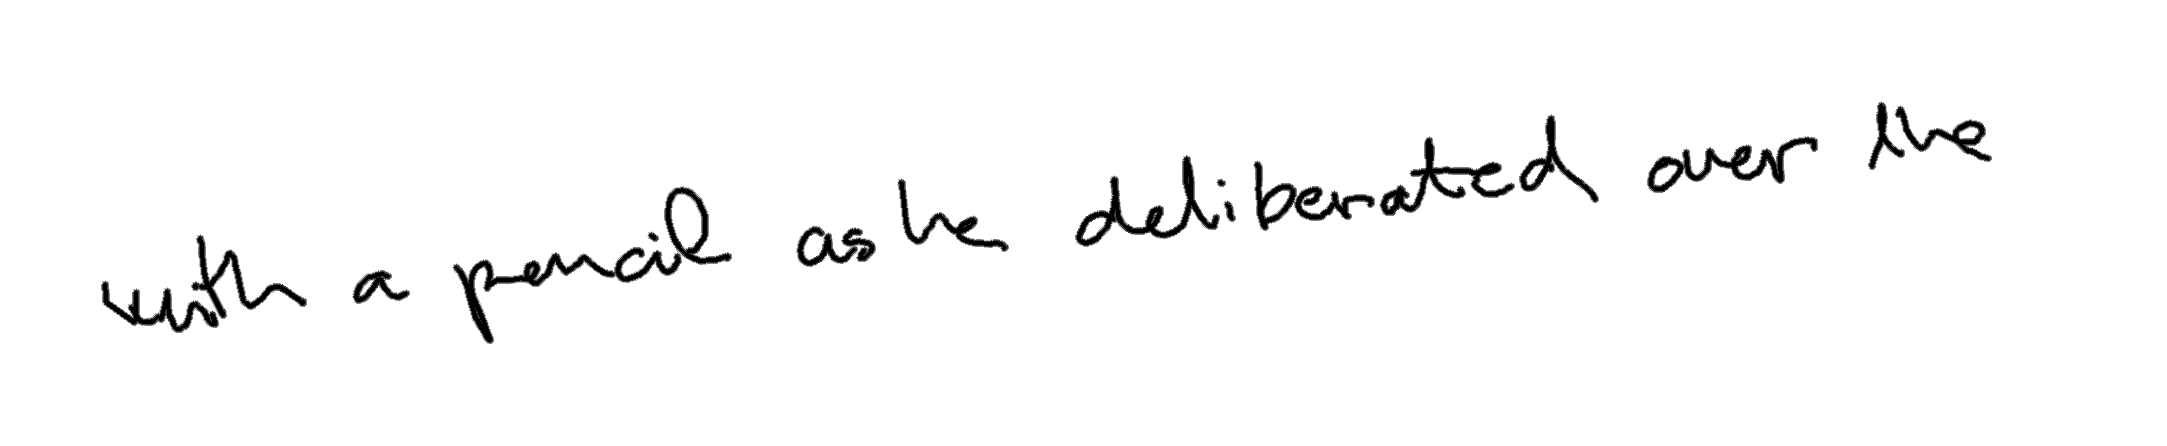 with a pencil as he deliberated over the